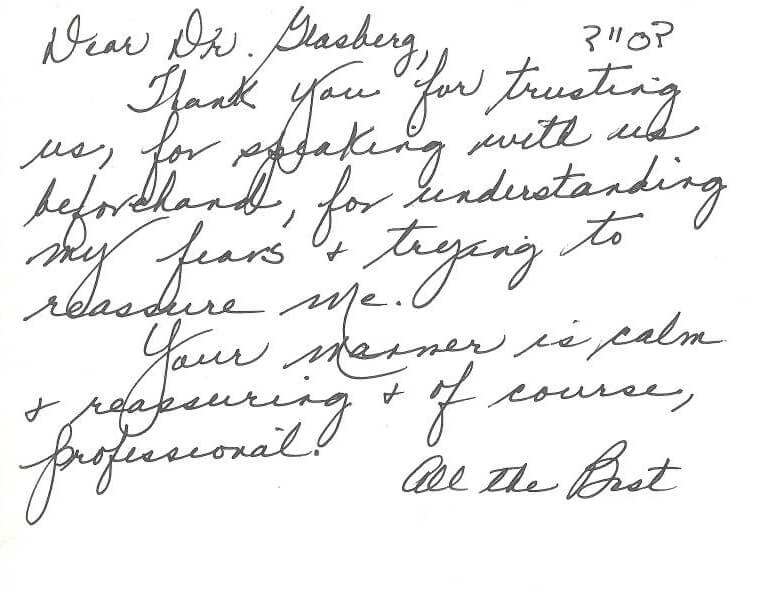 Dear Dr. Glasberg, ב"ה
Thank you for trusting
us, for speaking with us
beforehand, for understanding
my fears & trying to
reassure me.
Your manner is calm
& reassuring & of course,
professional.
All the Best